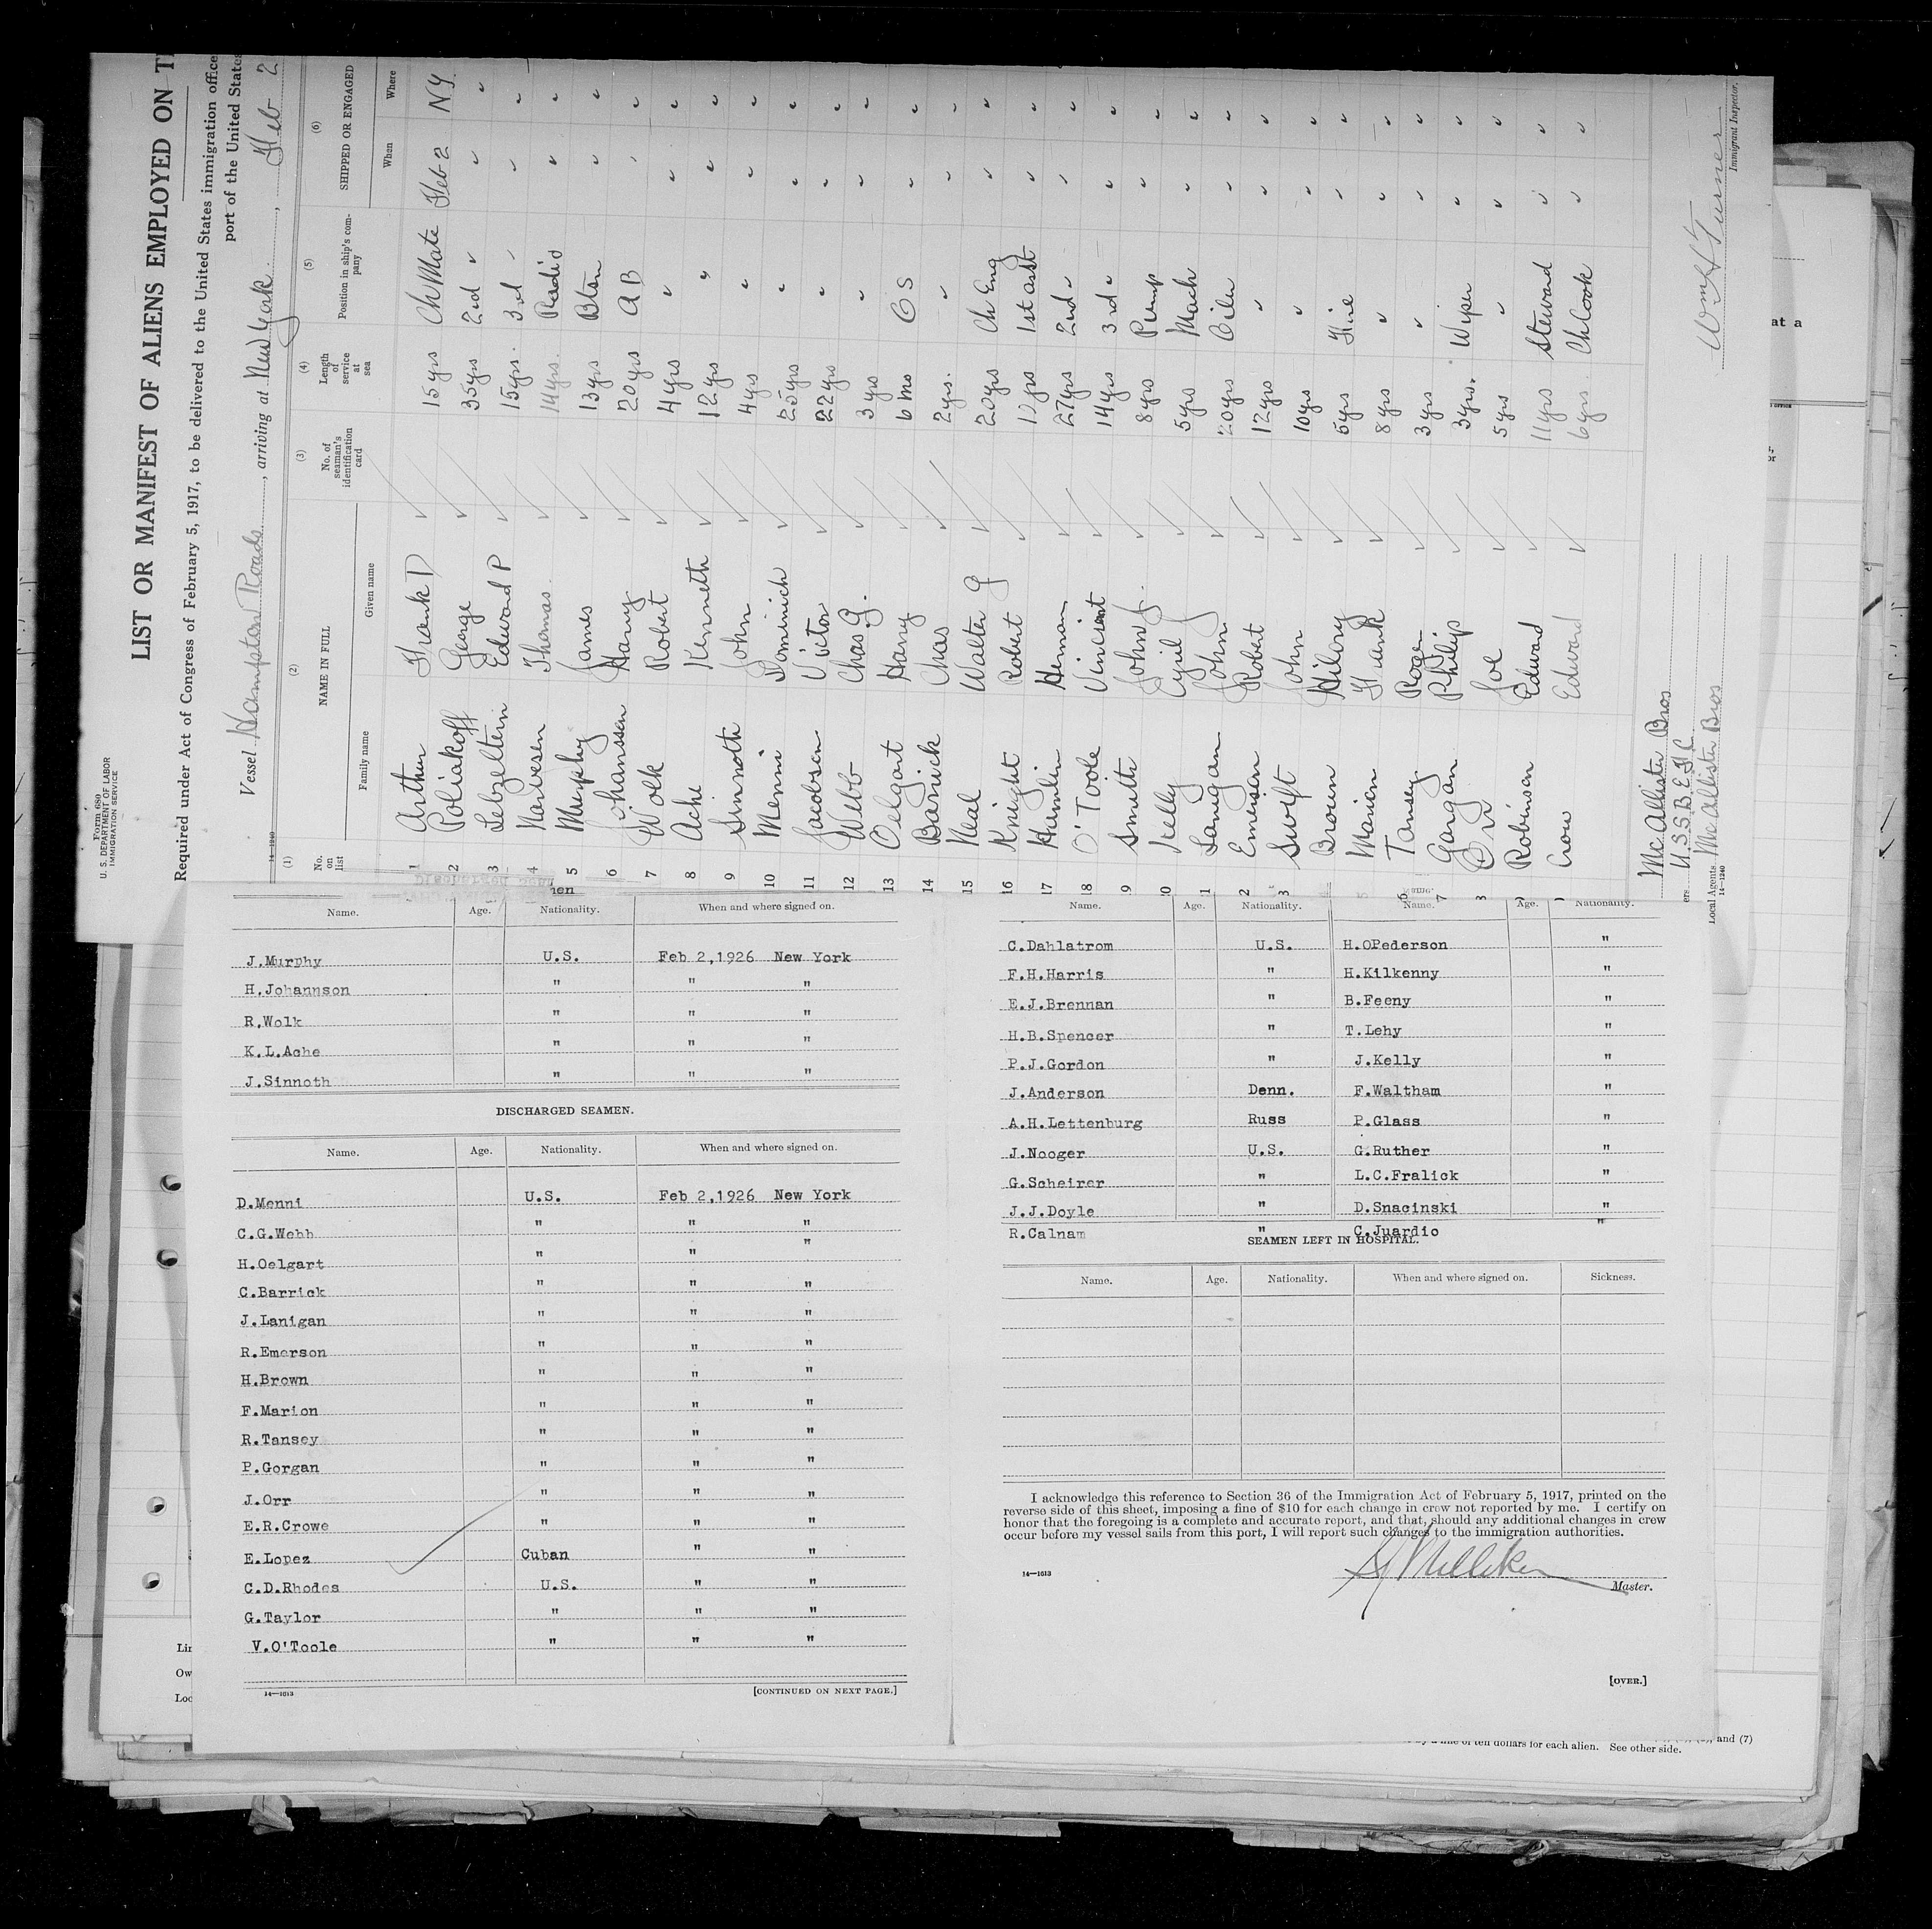 Form 680
U. S. DEPARTMENT OF LABOR
IMMIGRATION SERVICE
LIST OR MANIFEST OF ALIENS EMPLOYED ON T
Required under Act of Congress of February 5, 1917, to be delivered to the United States immigration office
port of the United State
Vessel Hampton Roads, arriving at New York, Feb 2
14-1240
(1) (2) (3) (4) (5) (6)
No. on list NAME IN FULL No. of seaman's identification card Length of service at sea Position in ship's company SHIPPED OR ENGAGED
Family name Given name When Where
1 Arthur Frank D 15 yrs Ch Mate Feb 2 N.Y.
2 Poliakoff George 35 yrs 2nd " " "
3 Lebzeltern Edward P 15 yrs. 3rd " " "
4 Narvesen Thomas 14 yrs. Radio " "
5 Murphy James 13 yrs Btsn " "
6 Johanssen Harry 20 yrs A B " "
7 Wolk Robert 4 yrs " " "
8 Ache Kenneth 12 yrs " " "
9 Sinnoth John 4 yrs " " "
10 Menni Dominick 25 yrs " " "
11 Jacobsen Victor 22 yrs " " "
12 Webb Chas G. 3 yrs " " "
13 Oelgart Harry 6 mos O S " "
14 Barrick Chas 2 yrs. " " "
15 Neal Walter G 20 yrs Ch Eng " "
16 Knight Robert yrs 1st asst " "
17 Hamlin Herman 27 yrs 2nd " " "
18 O'Toole Vincient 14 yrs 3rd " " "
19 Smith John J. 8 yrs Pump " "
20 Kelly Cyril J 5 yrs Mach " "
1 Lanigan John J 20 yrs Oiler " "
2 Emerison Robert 12 yrs " " "
3 Swift John 10 yrs " " "
Brown Hilory 5 yrs Fire " "
Marion Frank 8 yrs " " "
6 Tansey Roger 3 yrs " " "
7 Gorgan Philip 3 yrs. Wiper " "
8 Orr Joe 5 yrs " " "
Robinson Edward 11 yrs Steward " "
Crow Edward 6 yrs Ch Cook " "
McAllister Bros
ers U.S.S.B.E.F.C.
Local Agents McAllister Bros
14-1240
Wm H Turner
Immigrant Inspector.
Name. Age. Nationality. When and where signed on.
J.Murphy U.S. Feb 2,1926 New York
H.Johannson " " "
R.Wolk " " "
K.L.Ache " " "
J.Sinnoth " " "
DISCHARGED SEAMEN.
Name. Age. Nationality. When and where signed on.
D.Menni U.S. Feb 2,1926 New York
C.G.Webb " " "
H.Oelgart " " "
C.Barrick " " "
J.Lanigan " " "
R.Emerson " " "
H.Brown " " "
F.Marion " " "
R.Tansey " " "
P.Gorgan " " "
J.Orr " " "
E.R.Crowe " " "
E.Lopez Cuban " "
C.D.Rhodes U.S. " "
G.Taylor " " "
V.O'Toole " " "
14—1613 [CONTINUED ON NEXT PAGE.]
Name. Age. Nationality. Name. Age. Nationality.
C.Dahlatrom U.S. H.OPederson "
F.H.Harris " H.Kilkenny "
E.J.Brennan " B.Feeny "
H.B.Spencer " T.Lehy "
P.J.Gordon " J.Kelly "
J.Anderson Denn. F.Waltham "
A.H.Lettenburg Russ P.Glass "
J.Nooger U.S. G.Ruther "
G.Scheirer " L.C.Fralick "
J.J.Doyle " D.Snacinski "
R.Calnam " C.Juardio "
SEAMEN LEFT IN HOSPITAL.
Name. Age. Nationality. When and where signed on. Sickness.
I acknowledge this reference to Section 36 of the Immigration Act of February 5, 1917, printed on the
reverse side of this sheet, imposing a fine of $10 for each change in crew not reported by me. I certify on
honor that the foregoing is a complete and accurate report, and that, should any additional changes in crew
occur before my vessel sails from this port, I will report such changes to the immigration authorities.
14—1613
Milliken
Master.
[OVER.]
at a
Lin
Ow
Loc
and (7)
of ten dollars for each alien. See other side.